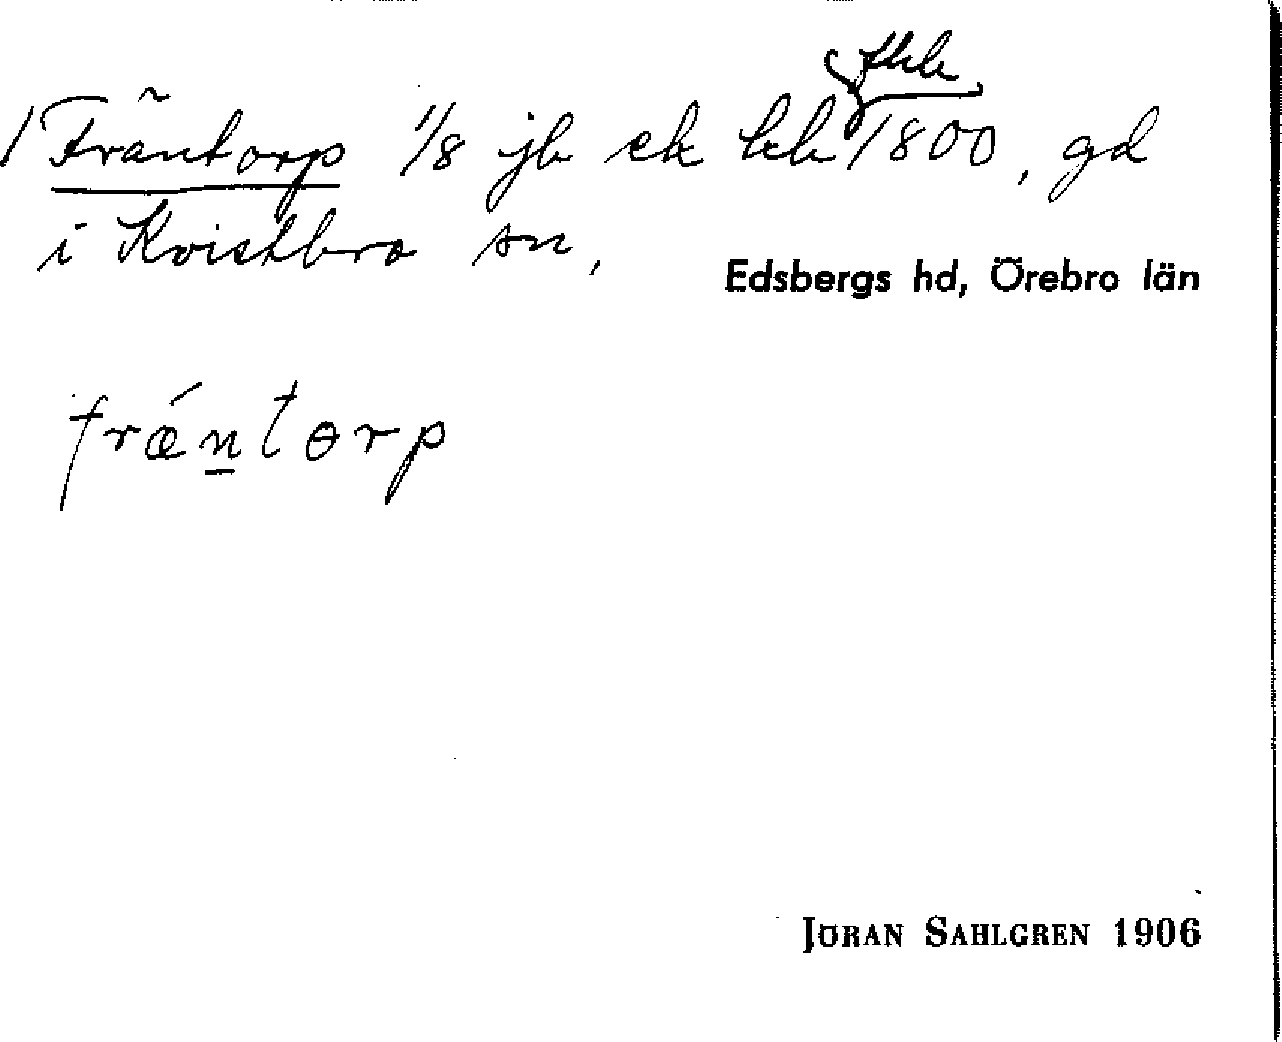 fkb
/ Fräntorp 1/8 jb ek kb 1800, gd
i Kvistbro sn,
Edsbergs hd, Örebro län
frǽntɵrp
JÖRAN SAHLGREN 1906